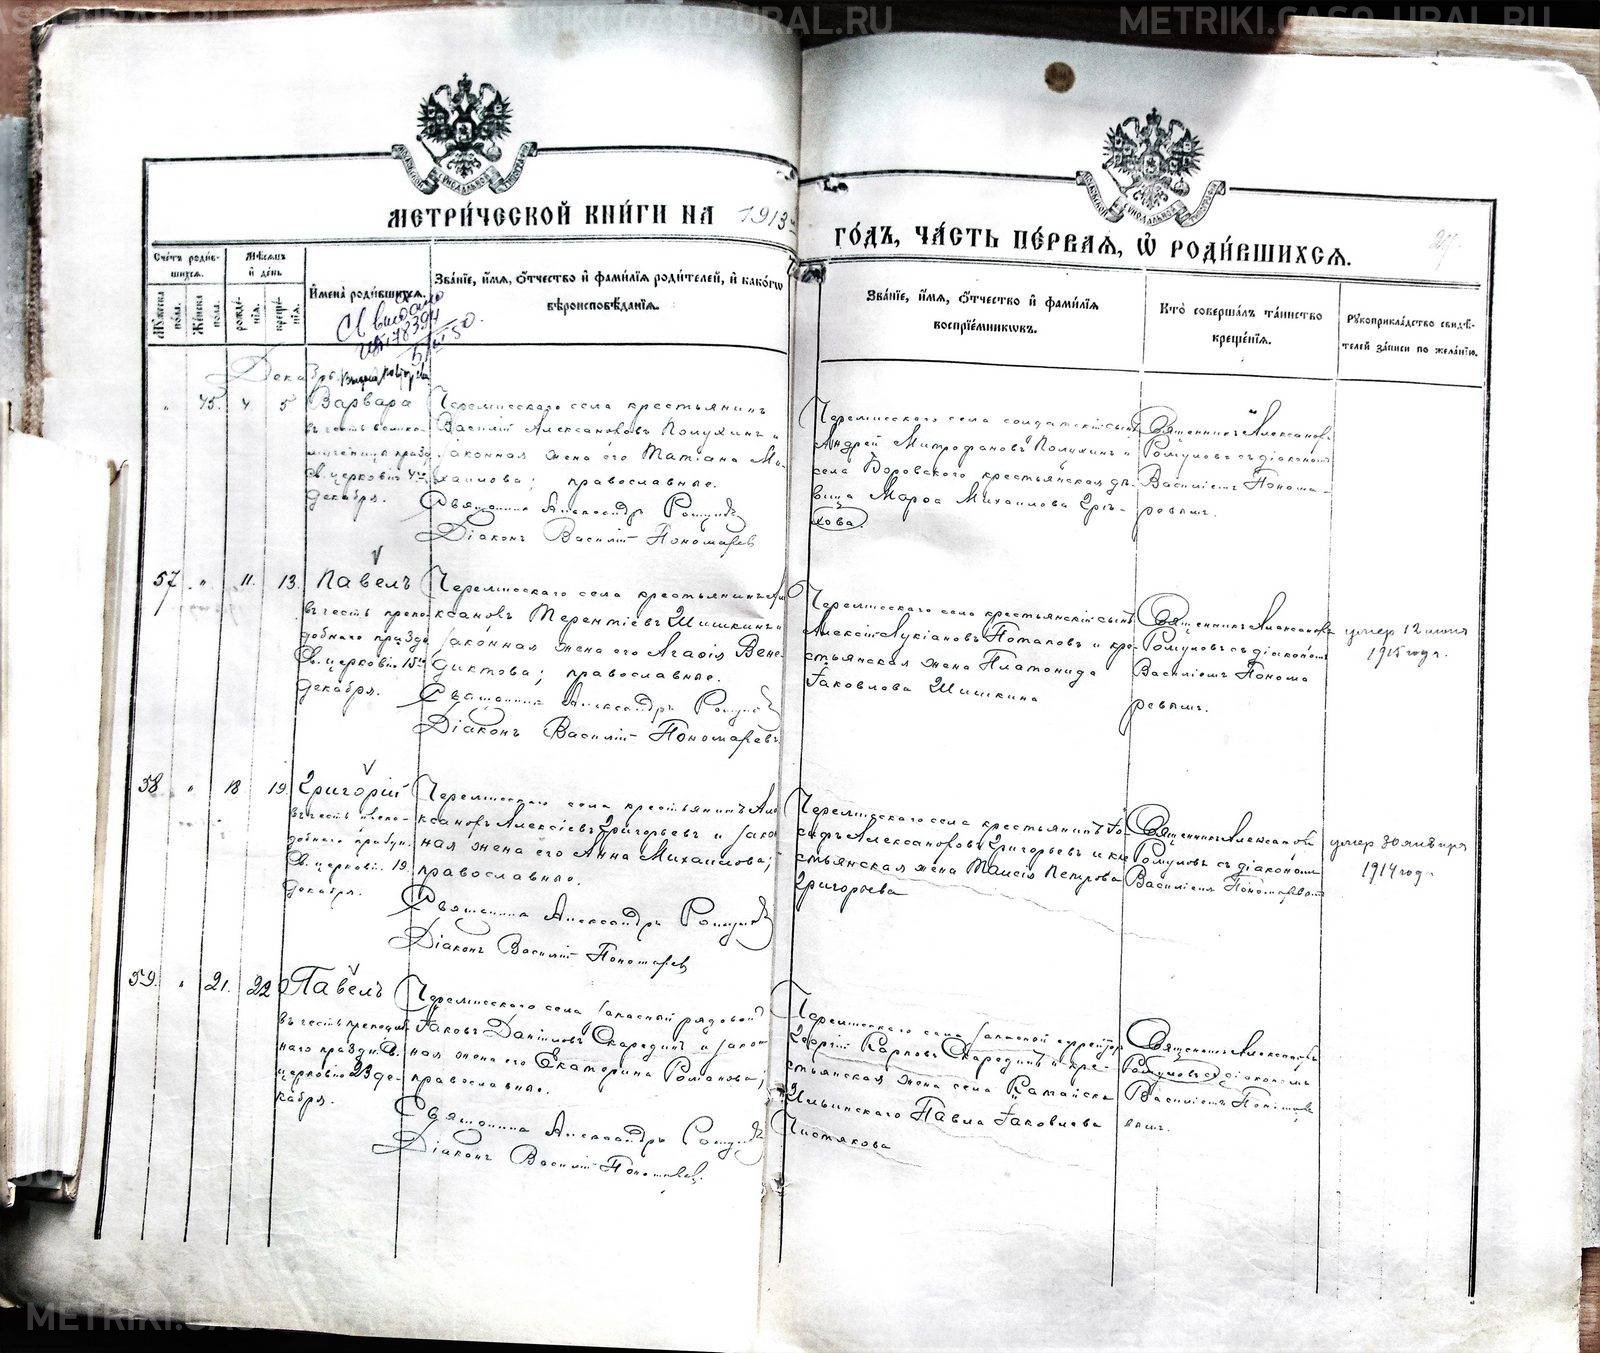 METRIKI.GASO-URAL.RU
METRIKI.GASO-URAL.RU
МЕТРИ́ЧЕСКОЙ КНИ́ГИ НА 1913
ГО́ДЪ, ЧА́СТЬ ПЕ́РВАЯ, Ѡ РОДИ́ВШИХСЯ.
Сче́тъ роди́в-
шихся.
Му́жеска пола.
Же́нска пола.
Мѣсяцъ
и де́нь
рожде́-
нія.
креще́-
нія.
Имена̀ роди́вшихся.
Зва́ніе, и́мя, о́тчество и фами́лія роди́телей, и како́гѡ
вѣроисповѣ́данія.
Зва́ніе, и́мя, о́тчество и фами́лія
воспрїе́мникѡвъ.
Кто̀ соверша́лъ та́инство
креще́нія.
Рукоприкла́дство свидѣ́-
телей за́писи по жела́нію.
Декабрь
45. 4 5 Варвара
въ честь велико-
мученицы празд.
Св. церковію 4го
декабря.
Черемисскаго села крестьянинъ
Василій Александровъ Полухинъ и
законная жена его Татіана Ми-
хаилова; православные.
Священникъ Александръ Ромуловъ
Діаконъ Василій Пономаревъ
Черемисскаго села солдатскій сынъ
Андрей Митрофановъ Полухинъ и
села Боровского крестьянская дѣ-
вица Мароа Михаилова
Священникъ Александръ
Ромуловъ съ діакономъ
Василіемъ Понома-
ревымъ.
57 " 11. 13. Павелъ
въ честь препо-
добнаго празд.
Св. церковію 15го
декабря.
Черемисскаго села крестьянинъ Але-
ксандръ Терентіевъ Шишкинъ и
законная жена его Агаѳія Вене-
диктова; православные.
Священникъ Александръ Ромуловъ
Діаконъ Василій Пономаревъ
Черемисскаго села крестьянскій сынъ
Алексій Лукіановъ Потаповъ и кре-
стьянская жена Платонида
Іаковлова Шишкина
Священникъ Александръ
Ромуловъ съ діакономъ
Василіемъ Понома
ревымъ.
умер 12
1915 года.
58 " 18 19. Григорій
въ честь препо-
добнаго праздн.
Св. церковію 19
декабря.
Черемисскаго села крестьянинъ Але-
ксандръ Алексіевъ Григорьевъ и зако-
ная жена его Анна Михаилова;
православные.
Священникъ Александръ Ромуловъ
Діаконъ Василій Пономаревъ
Черемисскаго села крестьянинъ Іо-
сифъ Александровъ Григорьевъ и кре
стьянская жена Таисія Петрова
Григорьева
Священникъ Александръ
Ромуловъ съ діакономъ
Василіемъ Пономаревымъ
умер 30 января
1914 года
59. " 21. 22 Павелъ
въ честь преподоб
наго праздн. Св.
церковію 23 де-
кабря.
Черемисскаго села запасный рядовой
Іаковъ Даніиловъ Скарединъ и закон
ная жена его Екатерина Романова;
православные.
Священникъ Александръ Ромуловъ
Діаконъ Василій Пономаревъ.
Черемисскаго села запасной ефрейторъ
Георгій Карповъ Скарединъ и кре-
стьянская жена села Камайска
Ильинскаго Павла Іаковлева
Чистякова
Священникъ Александръ
Ромуловъ съ діакономъ
Василіемъ Пономаре
вымъ.
METRIKI.GASO-URAL.RU
METRIKI.GASO-URAL.RU